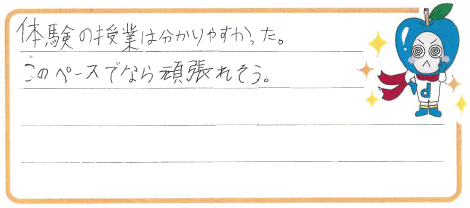 体験の授業は分かりやすかった。
このペースでなら頑張れそう。
d